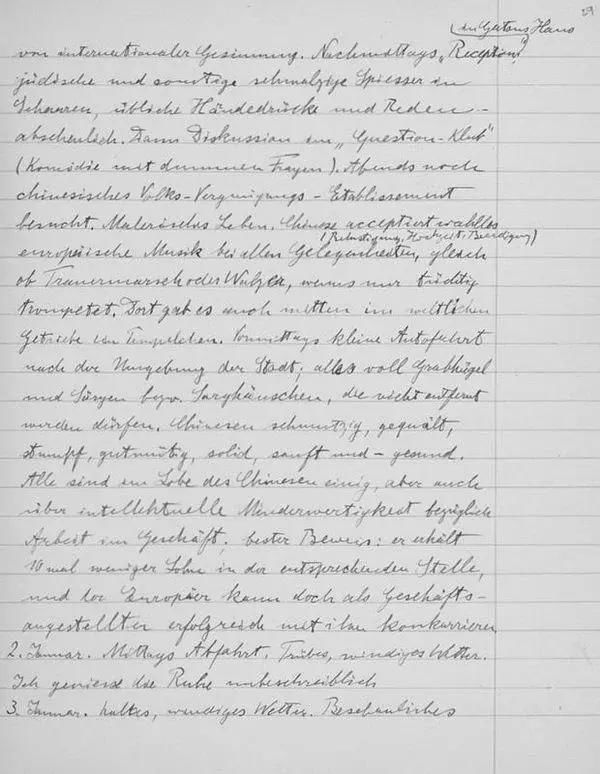 29
(in Gattons Haus
von internationaler Gesinnung. Nachmittags „Reception".
jüdische und sonstige schmalzige Spiesser in
Scharen, übliche Händedrücke und Reden -
abscheulich. Dann Diskussion im „Question-Klub"
(Komödie mit dummen Fragen). Abends noch
chinesisches Volks-Vergnügungs-Etablissement
besucht. Malerisches Leben. Chinese acceptiert wahllos
(Belustigung, Hochzeit, Beerdigung)
europäische Musik bei allen Gelegenheiten, gleich
ob Trauermarsch oder Walzer, wenns nur tüchtig
trompetet. Dort gab es auch mitten im weltlichen
Getriebe ein Tempelchen. Vormittags kleine Autofahrt
nach der Umgebung der Stadt; alles voll Grabhügel
und Särgen bezw. Sarghäuschen, die nicht entfernt
werden dürfen. Chinesen schmutzig, gequält,
stumpf, gutmütig, solid, sanft und - gesund.
Alle sind im Lobe des Chinesen einig, aber auch
über intellektuelle Minderwertigkeit bezüglich
Arbeit im Geschäft; bester Beweis: er erhält
10 mal weniger Lohn in der entsprechenden Stelle,
und der Europäer kann doch als Geschäfts-
angestellter erfolgreich mit ihm konkurrieren
2. Januar. Mittags Abfahrt. Trübes, windiges Wetter.
Ich geniesse die Ruhe unbeschreiblich
3. Januar. kaltes, windiges Wetter. Beschauliches